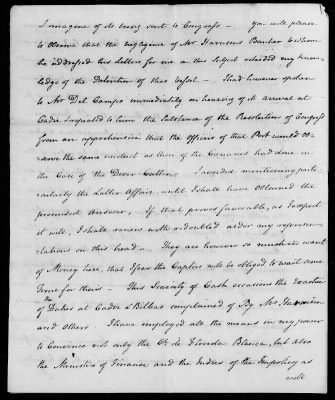 Imagine of its being sent to Congress — you will please
to observe that the negligence of Mr Harrisons Banker to whom
he addressed his letters for me on this subject retarded my know-
ledge of the Detention of this Vessel — I had however spoken
to Mr Del Campo immediately on hearing of its arrival at
Cadiz & repeated to him the Substance of the Resolution of Congress
from an apprehension that the officers of that Port would ob-
serve the same conduct as those of the Canaries had done in
the Case of the Dover Cutter — I avoided mentioning parti-
cularly the Latter Affair until I shall have obtained the
promised Answer, If that proves favorable, as I expect
it will, I shall renew with redoubled ardor my represen-
tations on this head — They are however so much in want
of Money here, that I fear the Captors will be obliged to wait some
time for theirs — This Scarcity of Cash occasions the Exaction
of Duties at Cadiz & Bilbao complained of By Mr Harrison
and others I have employed all the means in my power
to Convince not only the Ct. de Florida Blanca, but also
the Ministers of Finance and the Indies of the Impolicy as
well